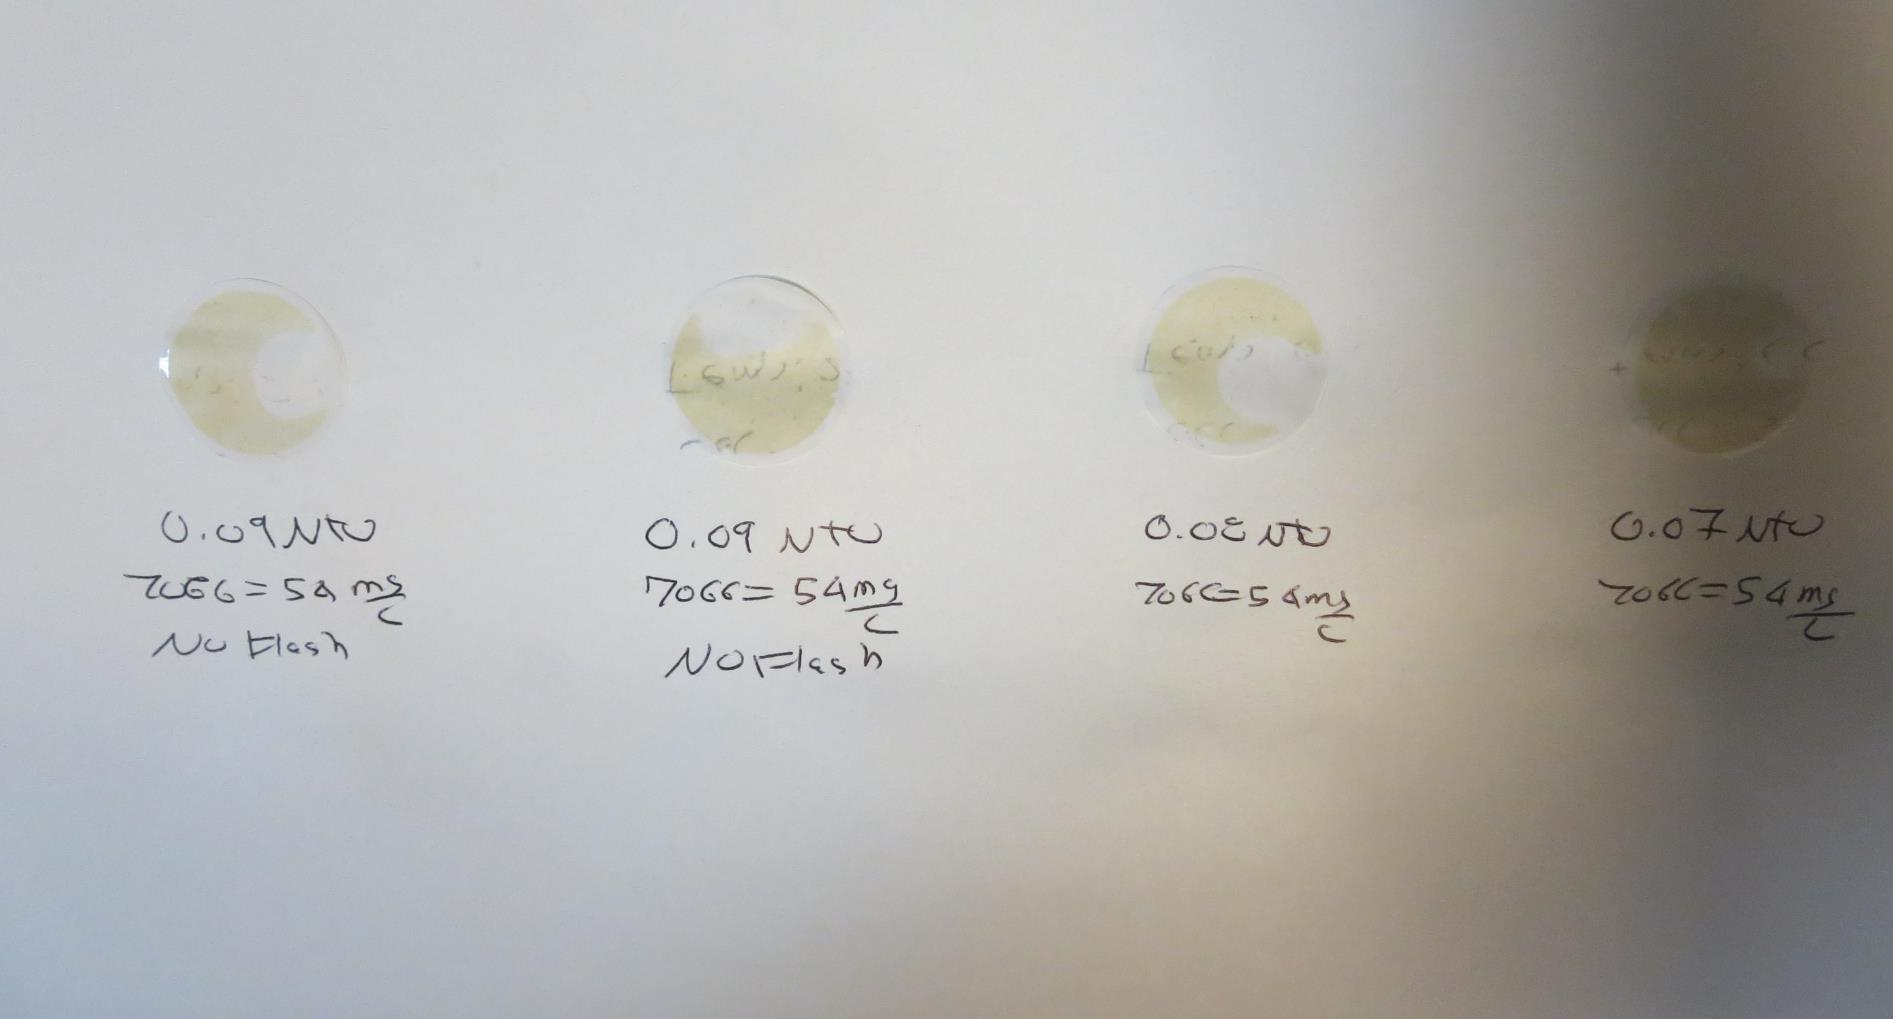 0.09 NTU
7066 = 54 mg/L
No Flash
0.09 NTU
7066 = 54 mg/L
No Flash
0.08 NTU
7066 = 54 mg/L
0.07 NTU
7066 = 54 mg/L